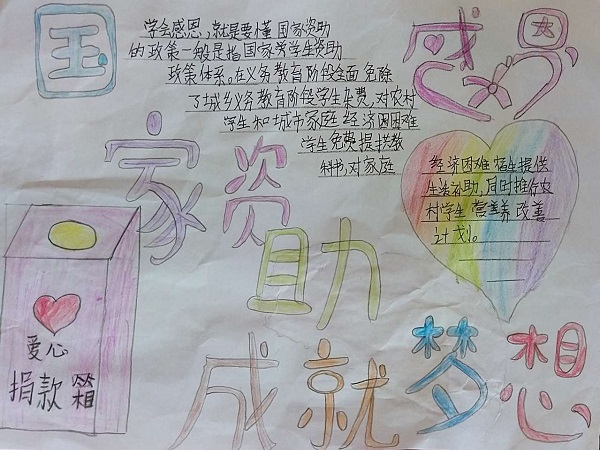 国
感恩
学会感恩，就是要懂国家资助
的政策一般是指国家学生资助
政策体系。在义务教育阶段全面免除
了城乡义务教育阶段学生杂费，对农村
学生和城市家庭经济困困难
学生免费提供教
科书，对家庭
经济困难宿生提供
生活补助，同时推行农
村学生营养改善
计划。
家资
助
爱心
捐款箱
成就梦想